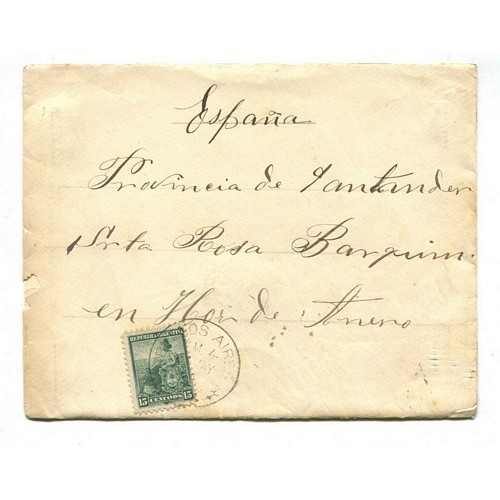 España
Provincia de Santander
Srta Rosa Barquin
en Hoz de Anero
REPUBLICA ARGENTINA
15 CENTAVOS 15
BUENOS AIRES